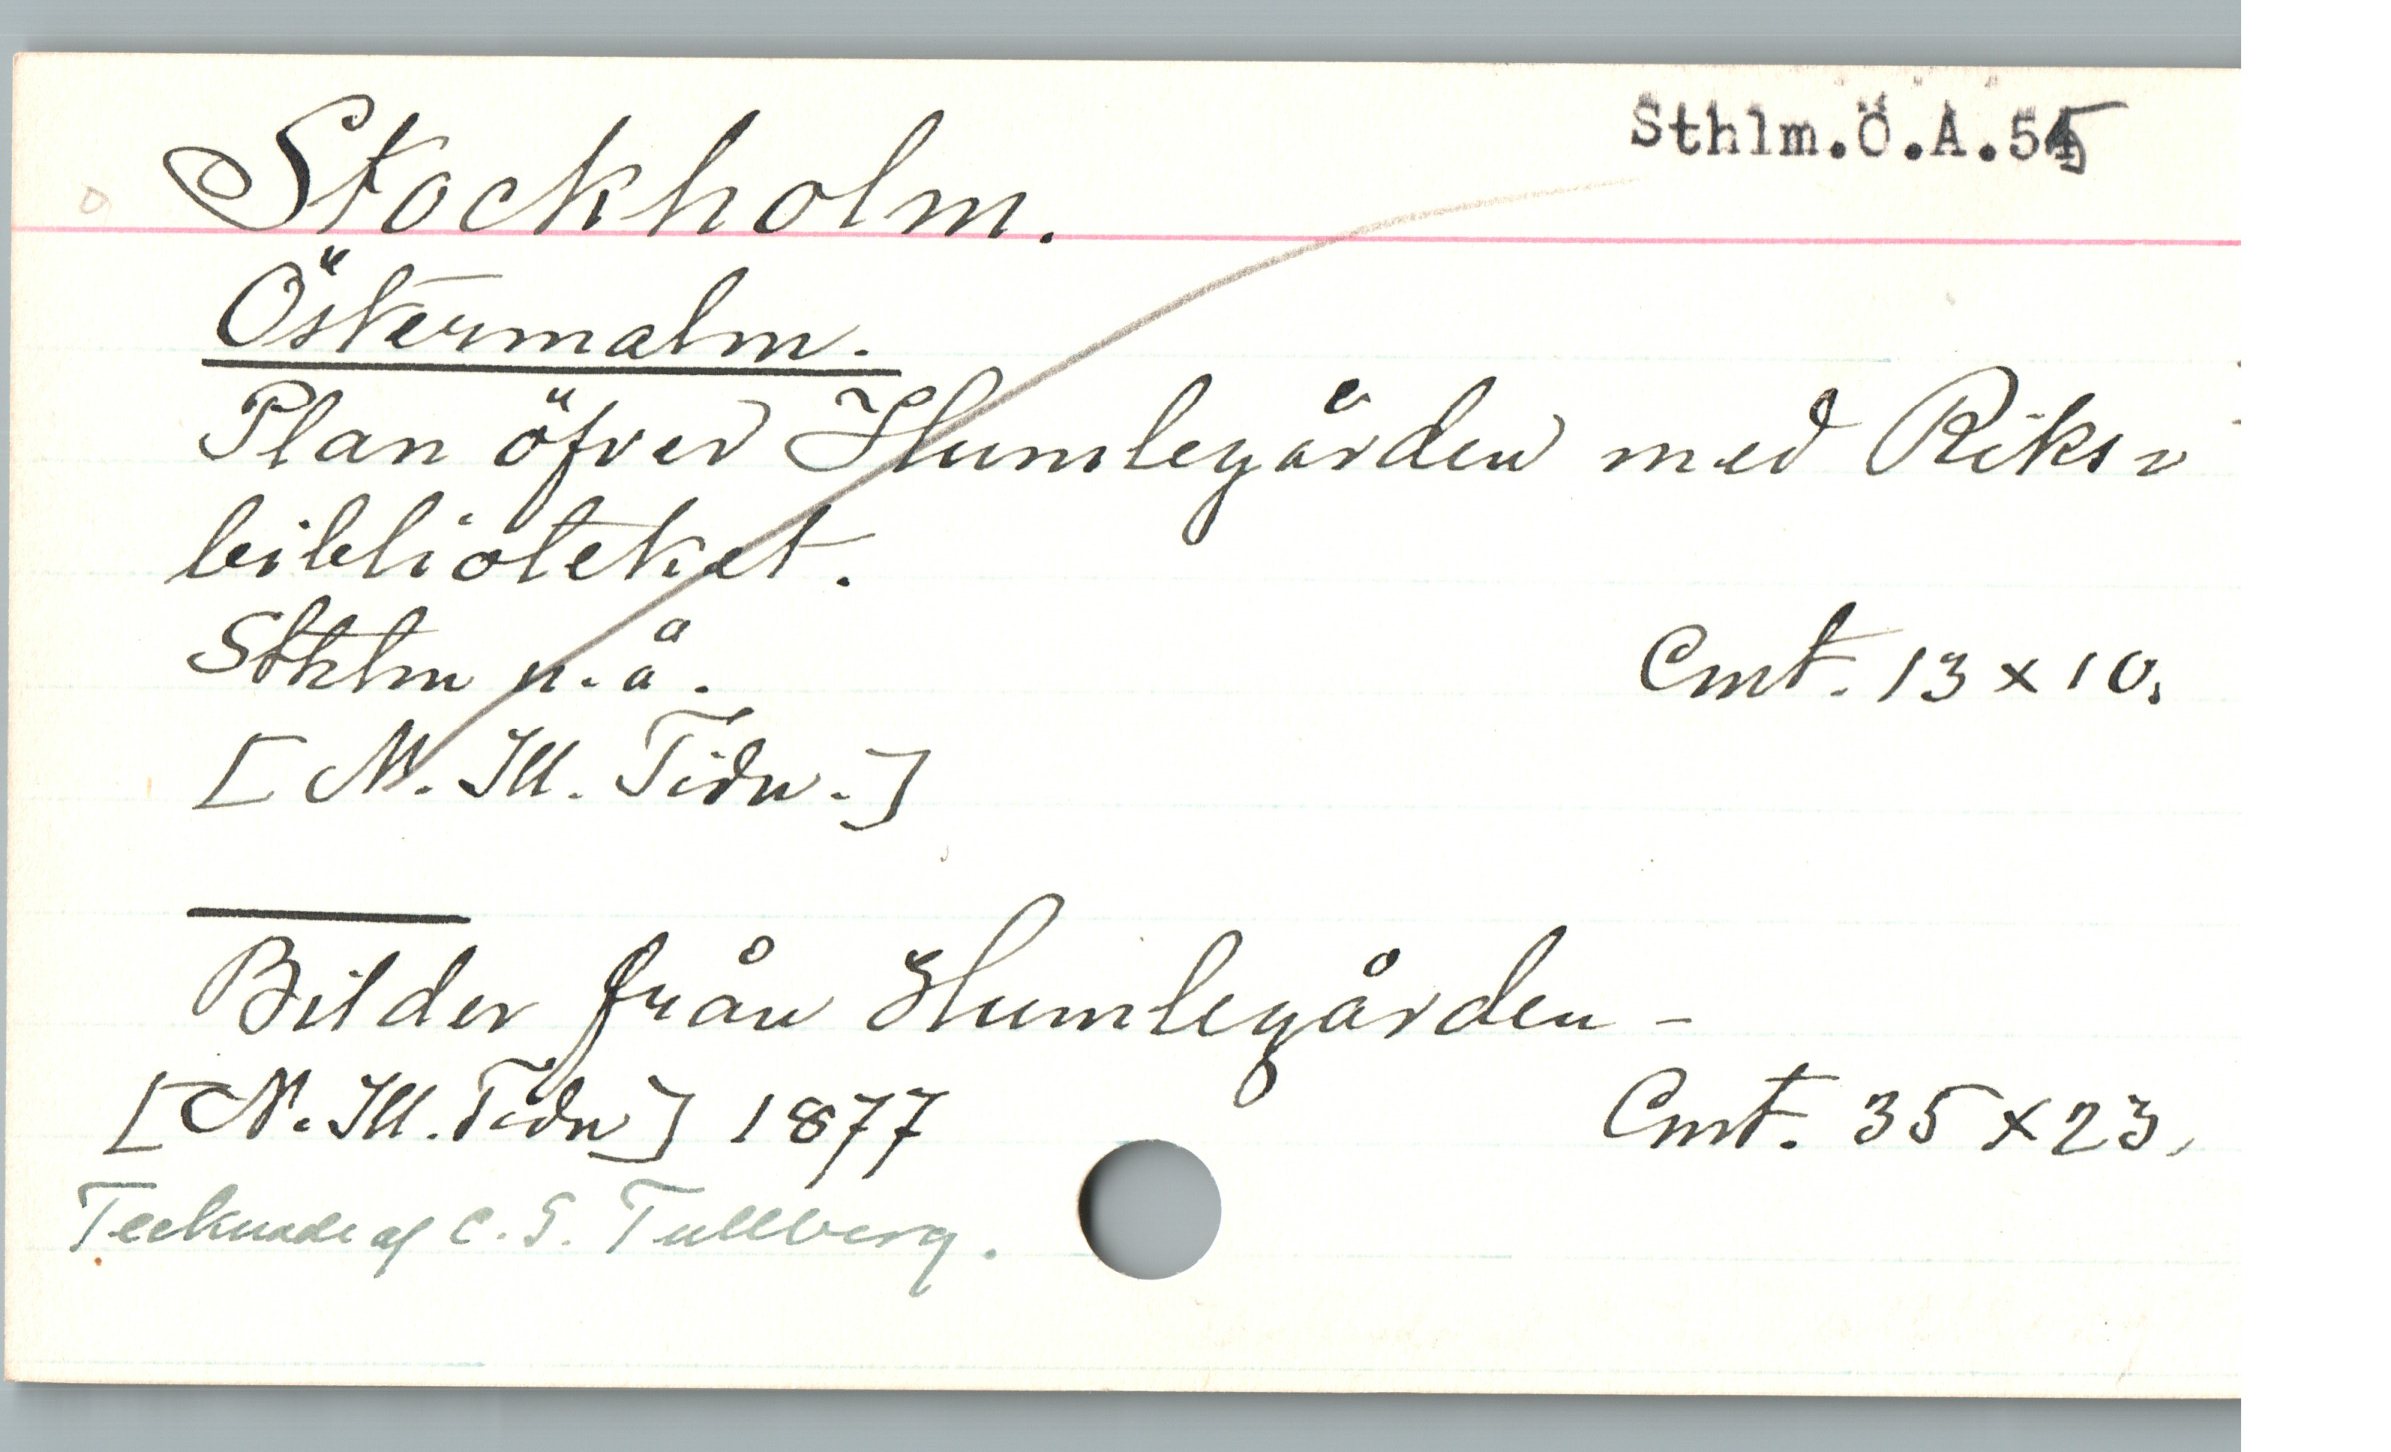 Sthlm.Ö.A.55
Stockholm.
Östermalm.
Plan öfver Humlegården med Riks-
biblioteket.
Sthlm u.å. Cmt. 13 x 10.
[N. Ill. Tidn.]
Bilder från Humlegården -
[N. Ill. Tidn] 1877 Cmt. 35 x 23.
Tecknade af C. S. Tullberg.